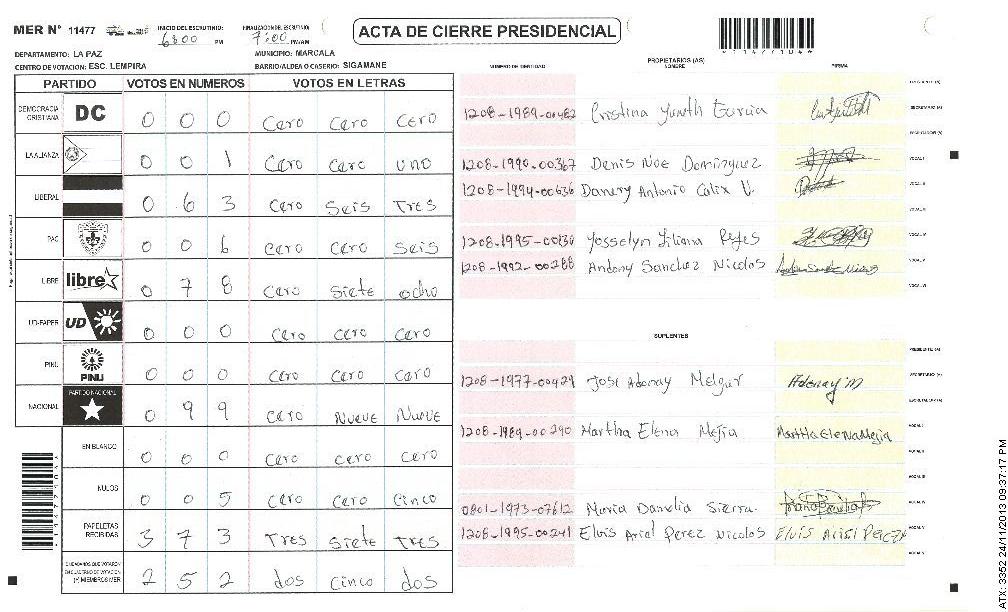 MER N° 11477
INICIO DEL ESCRUTINIO: 6:00 PM
FINALIZACION DEL ESCRUTINIO: 7:00 PM/AM
ACTA DE CIERRE PRESIDENCIAL
DEPARTAMENTO: LA PAZ
MUNICIPIO: MARCALA
CENTRO DE VOTACION: ESC. LEMPIRA
BARRIO/ALDEA O CASERIO: SIGAMANE
PARTIDO VOTOS EN NUMEROS VOTOS EN LETRAS
DEMOCRACIA CRISTIANA DC 0 0 0 Cero Cero Cero
LA ALIANZA 0 0 1 Cero Cero uno
LIBERAL 0 6 3 Cero Seis Tres
PAC 0 0 6 Cero Cero Seis
LIBRE libre 0 7 8 Cero Siete ocho
UD-FAPER UD 0 0 0 Cero Cero Cero
PINU PINU 0 0 0 Cero Cero Cero
NACIONAL PARTIDO NACIONAL 0 9 9 Cero Nueve Nueve
EN BLANCO 0 0 0 Cero Cero Cero
NULOS 0 0 5 Cero Cero Cinco
PAPELETAS RECIBIDAS 3 7 3 Tres Siete Tres
CIUDADANOS QUE VOTARON EN CUADERNO DE VOTACION (+) MIEMBROS MER 2 5 2 dos Cinco dos
NUMERO DE IDENTIDAD
PROPIETARIOS (AS)
NOMBRE
FIRMA
PRESIDENTE (A)
1208-1989-00482 Cristina SECRETARIO (A)
ESCRUTADOR (A)
1208-1990-00367 Denis Noe Dominguez VOCAL I
1208-1994-00636 Antonio Calix V. VOCAL II
VOCAL III
1208-1995-00130 Yosselyn Liliana Reyes VOCAL IV
1208-1992-00288 Antony Sanchez Nicolos VOCAL V
VOCAL VI
SUPLENTES
PRESIDENTE (A)
1208-1977-00429 Jose Adonay Melgar Adonay M SECRETARIO (A)
ESCRUTADOR (A)
1208-1989-00290 Martha Elena Mejia Martha Elena Mejia VOCAL I
VOCAL II
VOCAL III
0801-1973-07612 Maria Danelia Sierra VOCAL IV
1208-1995-00241 Elvis Ariel Perez Nicolos Elvis Ariel Perez VOCAL V
VOCAL VI
ATX: 3352 24/11/2013 09:37:17 PM